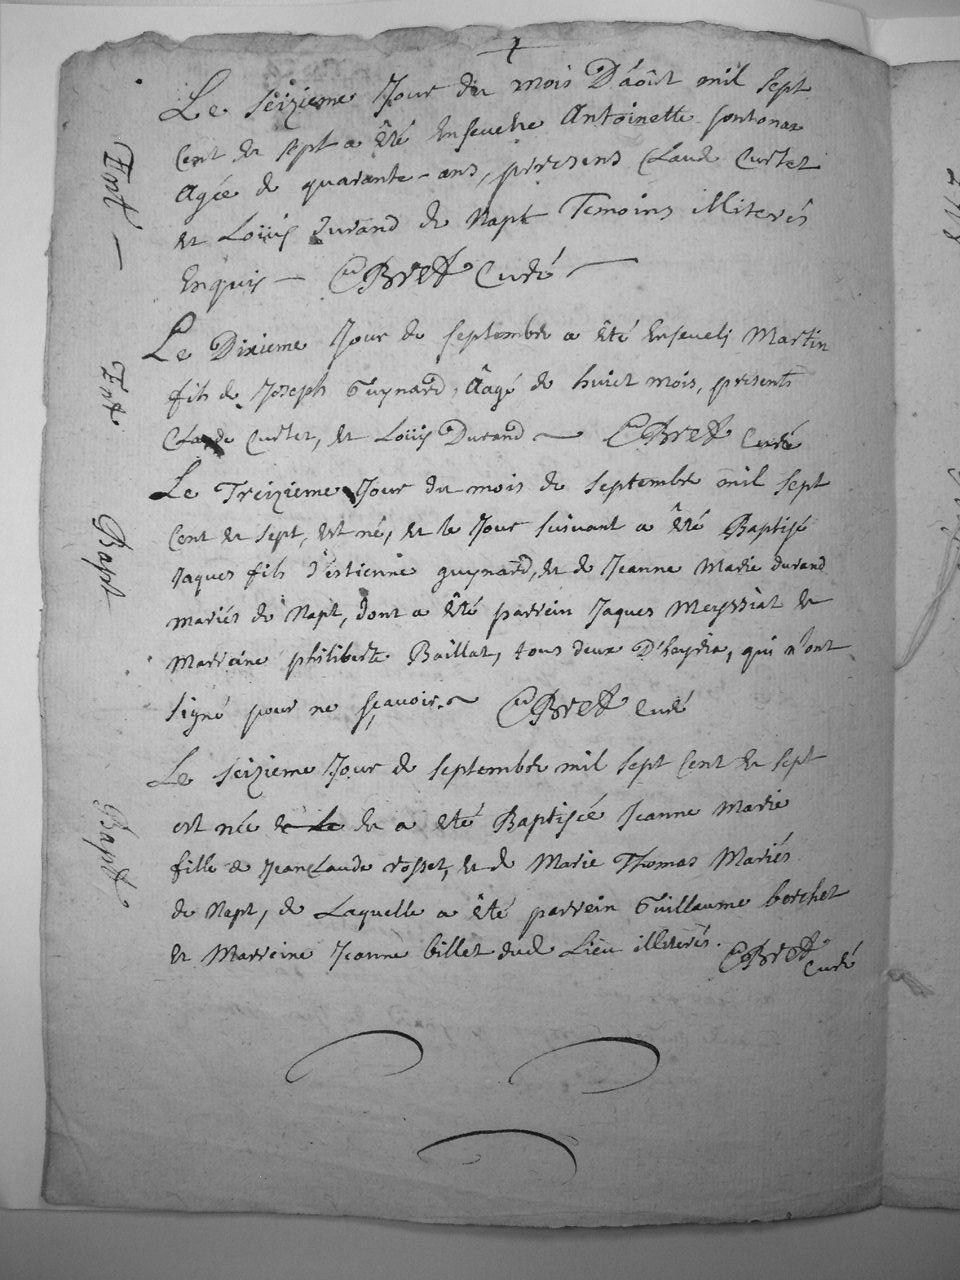 Le seizieme Jour du mois D'août mil sept
Cent et sept a été Ensevelie Antoinette fontonax
Agée de quarante-ans, presens Claude Curtet
et Loüis durand de Napt Temoins illiterés
Enquis — Cl Bret Curé —
Ent —
Le Dixieme Jour de septembre a êté Enseveli Martin
fils de Joseph Guynard, Aâgé de huict mois, presents
Claude Curtet, et Loüis Durand — Cl Bret Curé
Ent
Le Treizieme Jour du mois de septembre mil sept
Cent et sept, est né, et le Jour suivant a êté Baptisé
Jaques fils d'estienne guynard, et de Jeanne Marie durand
mariés de Napt, dont a êté parrein Jaques Meyssiat et
Marreine philiberte Baillat, tous deux qui n'ont
signé pour ne sçavoir. ~ Cl Bret Curé
Bapt
Le seizieme Jour de septembre mil sept Cent et sept
est née et Le et a eté Baptisée Jeanne Marie
fille de Jean Claude rosset, et de Marie Thomas Mariés
de Napt, de Laquelle a êté parrein Guillaume berchet
et Marreine Jeanne billet dud Lieu illiterés. Cl Bret
Curé
Bapt